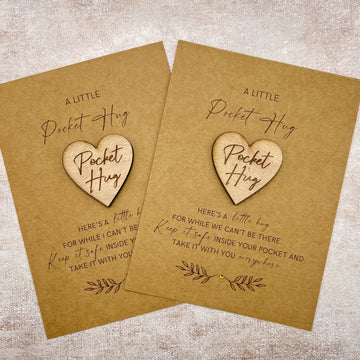 A LITTLE
Pocket Hug
Pocket
Hug
HERE'S A little hug
FOR WHILE I CAN'T BE
Keep it safe INSIDE YOUR
TAKE IT WITH YOU
A LITTLE
Pocket Hug
Pocket
Hug
HERE'S A little hug
FOR WHILE WE CAN'T BE THERE
Keep it safe INSIDE YOUR POCKET AND
TAKE IT WITH YOU everywhere